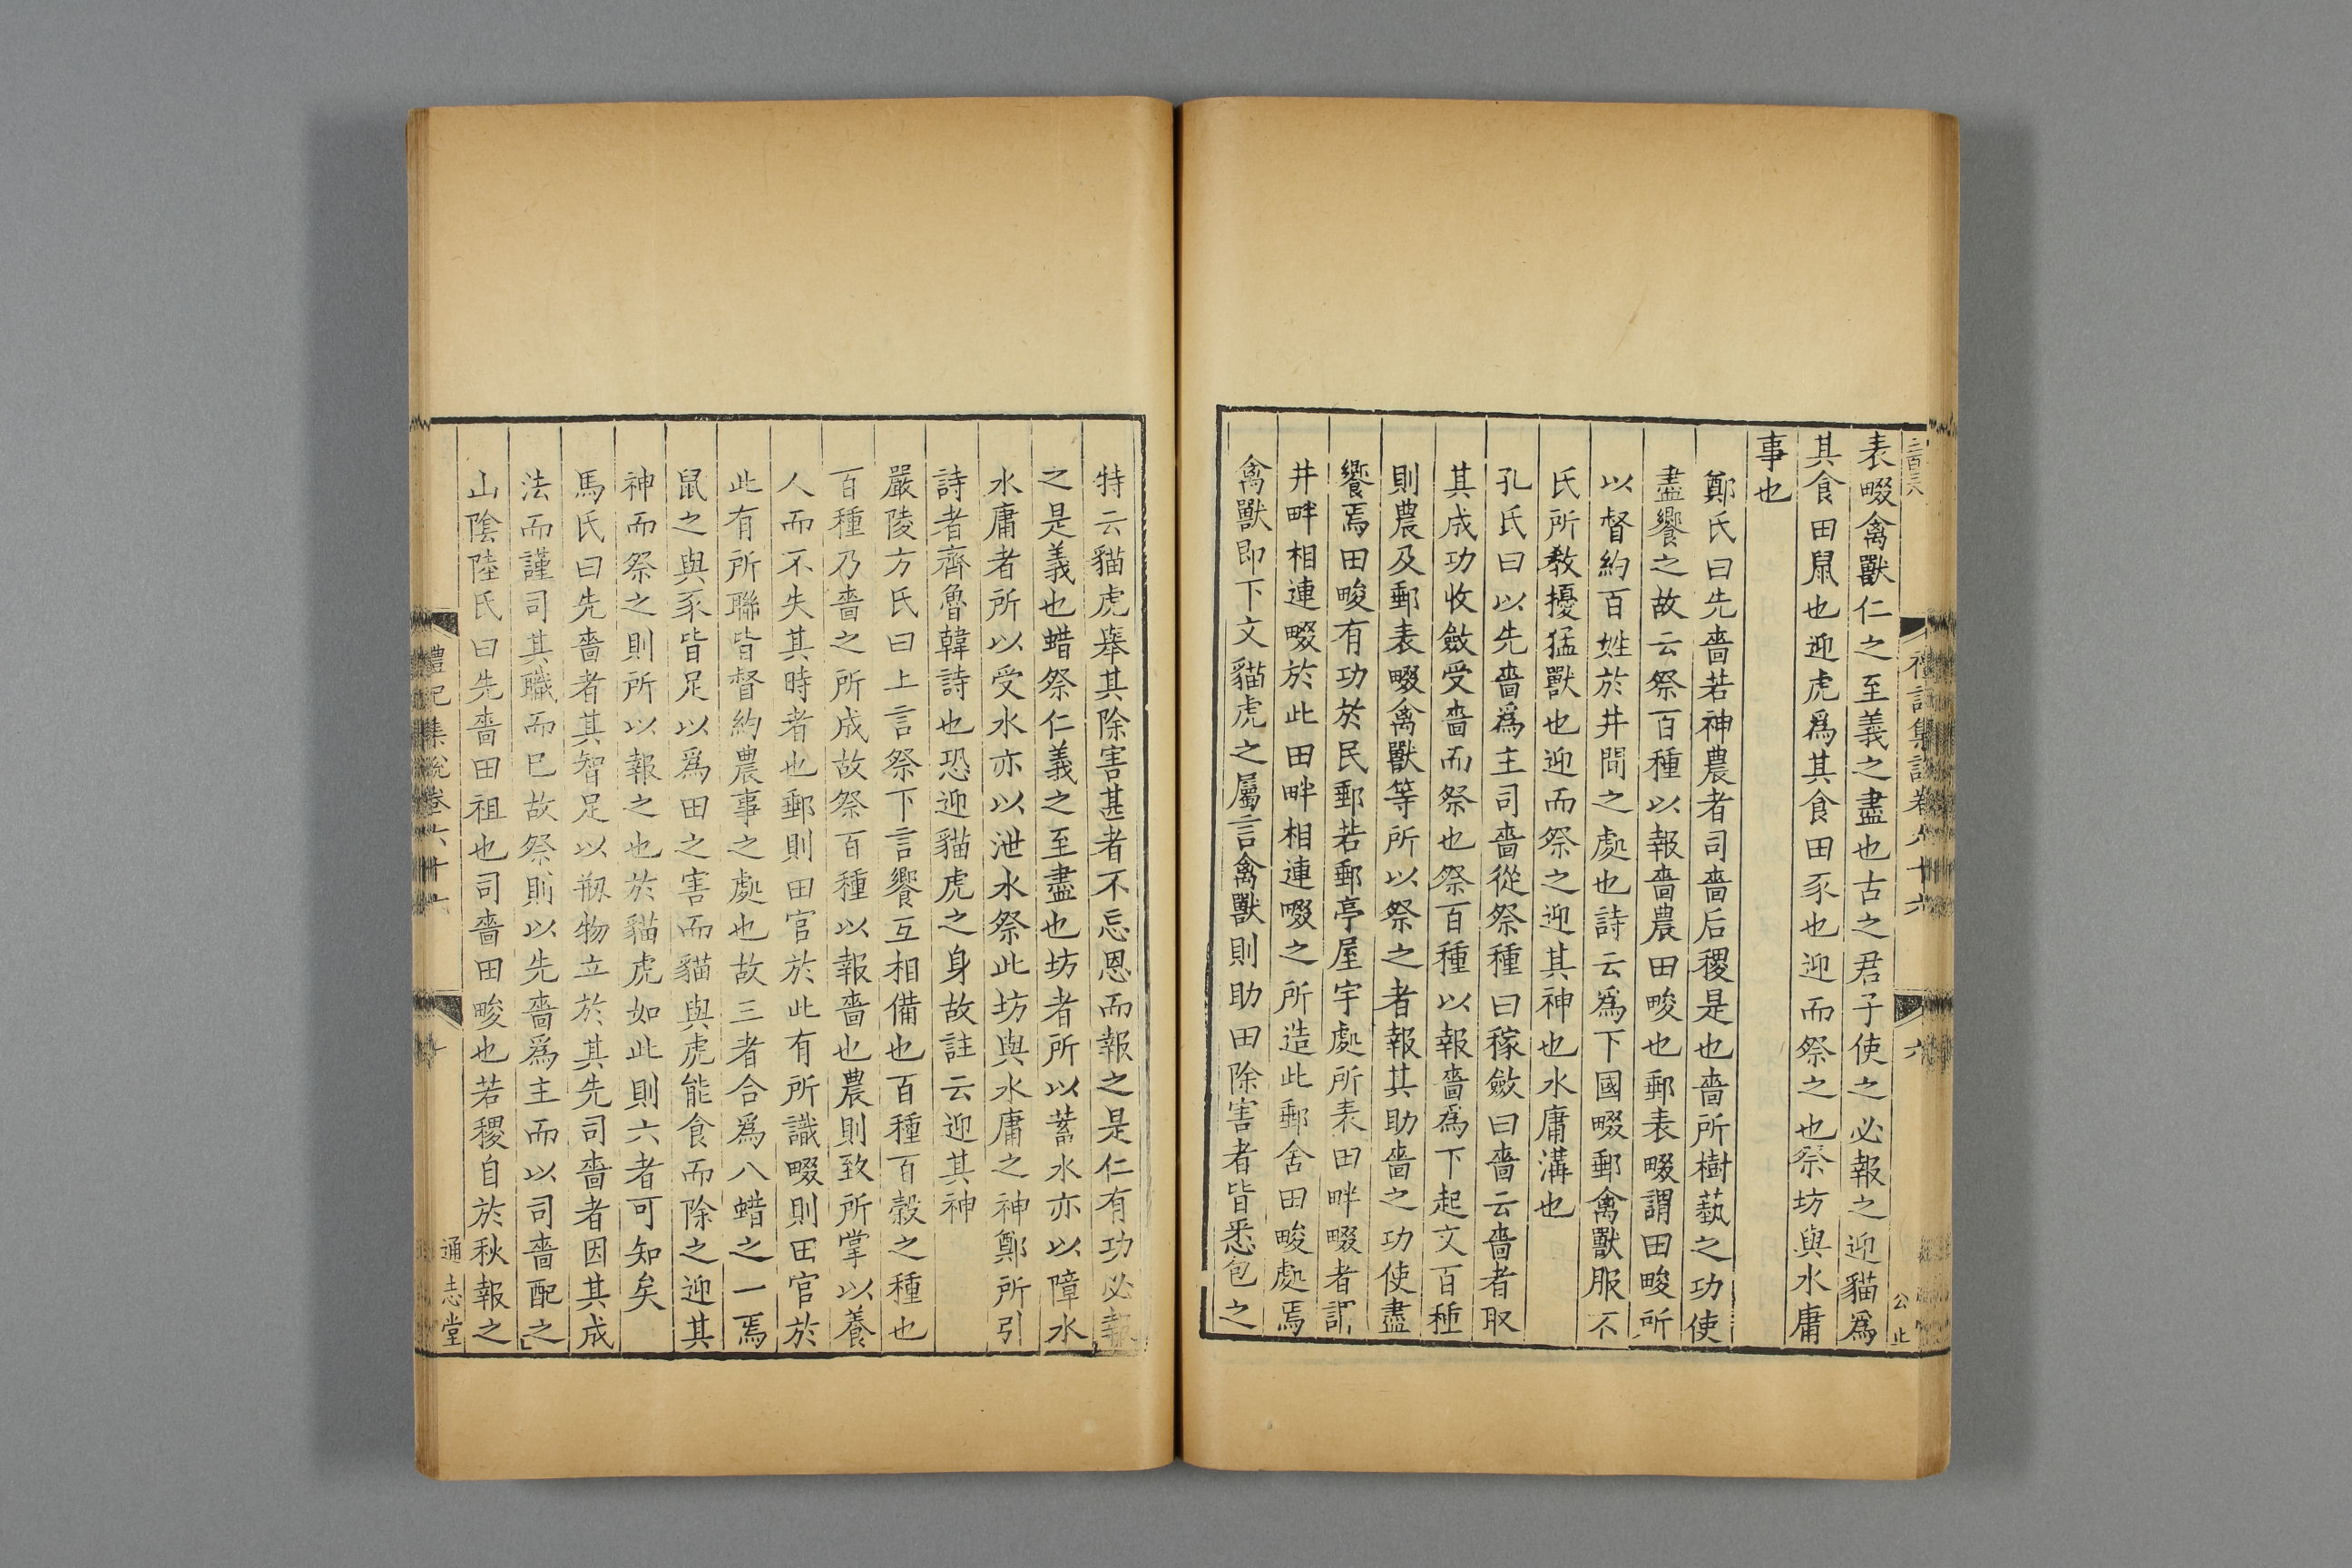 表畷禽獸仁之至義之盡也古之君子使之必報之迎貓爲
其食田鼠也迎虎爲其食田豕也迎而祭之也祭坊與水庸
事也
鄭氏曰先嗇若神農者司嗇后稷是也嗇所樹蓺之功使
盡饗之故云祭百種以報嗇農田畯也郵表畷謂田畯所
以督約百姓於井間之處也詩云爲下國畷郵禽獸服不
氏所教擾猛獸也迎而祭之迎其神也水庸溝也
孔氏曰以先嗇爲主司嗇從祭種曰稼斂曰嗇云嗇者取
其成功收斂受嗇而祭也祭百種以報嗇爲下起文百種
則農及郵表畷禽獸等所以祭之者報其助嗇之功使盡
饗焉田畯有功於民郵若郵亭屋宇處所表田畔畷者謂
井畔相連畷於此田畔相連畷之所造此郵舍田畯處焉
禽獸即下文貓虎之屬言禽獸則助田除害者皆悉包之
特云貓虎舉其除害甚者不忘恩而報之是仁有功必報
之是義也蜡祭仁義之至盡也坊者所以蓄水亦以障水
水庸者所以受水亦以泄水祭此坊與水庸之神鄭所引
詩者齊魯韓詩也恐迎貓虎之身故註云迎其神
嚴陵方氏曰上言祭下言饗互相備也百種百穀之種也
百種乃嗇之所成故祭百種以報嗇也農則致所掌以養
人而不失其時者也郵則田官於此有所識畷則田官於
此有所聯皆督約農事之處也故三者合爲八蜡之一焉
鼠之與豕皆足以爲田之害而貓與虎能食而除之迎其
神而祭之則所以報之也於貓虎如此則六者可知矣
馬氏曰先嗇者其智足以剏物立於其先司嗇者因其成
法而謹司其職而已故祭則以先嗇爲主而以司嗇配之
山陰陸氏曰先嗇田祖也司嗇田畯也若稷自於秋報之
禮記集說卷六十七
通志堂